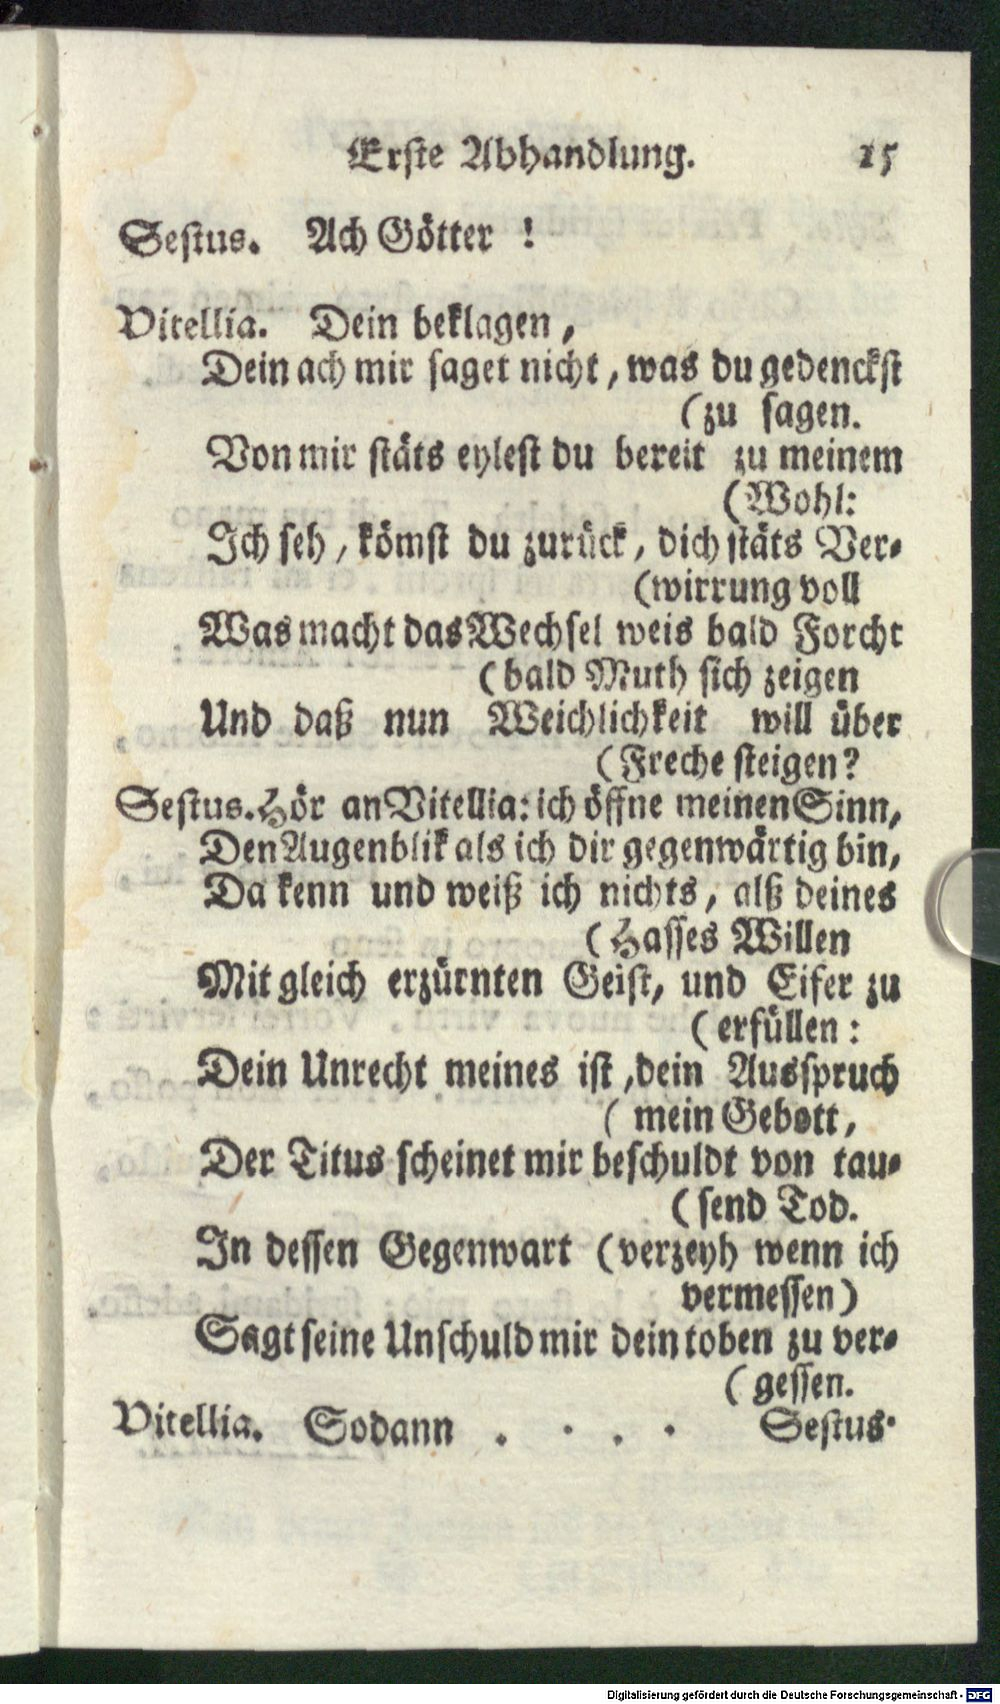 Erste Abhandlung. 15
Sestus. Ach Götter !
Vitellia. Dein beklagen,
Dein ach mir saget nicht, was du gedenckst
(zu sagen.
Von mir stäts eylest du bereit zu meinem
(Wohl:
Ich seh, kömst du zurück, dich stäts Ver-
(wirrung voll
Was macht das Wechsel weis bald Forcht
(bald Muth sich zeigen
Und daß nun Weichlichkeit will über
(Freche steigen?
Sestus. Hör an Vitellia: ich öffne meinen Sinn,
Den Augenblik als ich dir gegenwärtig bin,
Da kenn und weiß ich nichts, alß deines
(Hasses Willen
Mit gleich erzürnten Geist, und Eifer zu
(erfüllen:
Dein Unrecht meines ist, dein Ausspruch
(mein Gebott,
Der Titus scheinet mir beschuldt von tau-
(send Tod.
In dessen Gegenwart (verzeyh wenn ich
vermessen)
Sagt seine Unschuld mir dein toben zu ver-
(gessen.
Vitellia. Sodann . . . . Sestus.
Digitalisierung gefördert durch die Deutsche Forschungsgemeinschaft - DFG